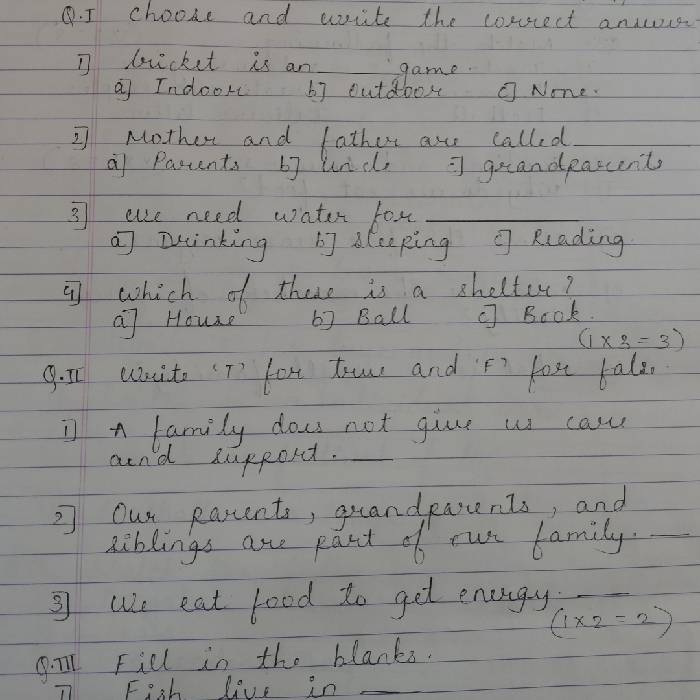 Q.I choose and write the correct answer
1] Cricket is an ____ game.
a] Indoor b] Outdoor c] None.
2] Mother and father are called
a] Parents b] Uncle c] grandparents
3] we need water for ________
a] Drinking b] Sleeping c] Reading
4] which of these is a shelter?
a] House b] Ball c] Book.
(1 x 3 = 3)
Q.II write 'T' for true and 'F' for false.
1] A family does not give us care
aend support. ___
2] Our parents, grandparents, and
siblings are part of our family. ___
3] We eat food to get energy. ___
(1 x 2 = 2)
Q.III Fill in the blanks.
1] Fish live in ____